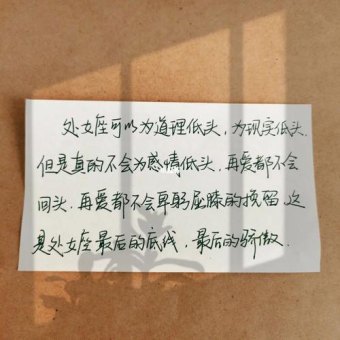 处女座可以为道理低头，为现实低头，
但是真的不会为感情低头，再爱都不会
回头，再爱都不会卑躬屈膝的挽留，这
是处女座最后的底线，最后的骄傲．